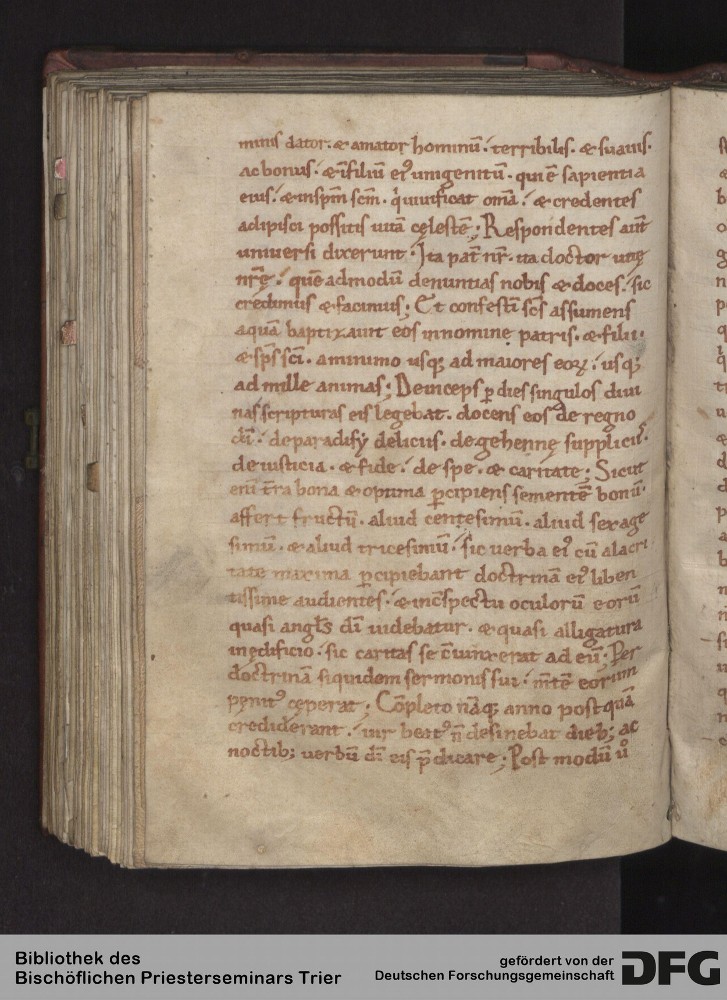 minis dator. & amator hominū. terribilis. & suauis.
ac bonus. & ī filiū ei᷒ unigenitū. qui ē sapientia
eius. & in sp̄m sc̄m. qͥ uiuificat om̄a. & credentes
adipisci possitis uitā cęlestē; Respondentes aūt
uniuersi dixerunt. Ita pat̄ nr̄. ita doctor uitę
nr̄ę. quēadmodū denuntias nobis & doces. sic
credimus & facimus; Et confestī sc̄s assumens
aquā baptizauit eos in nomine patris. & filii.
& sp̄s sc̄i. a minimo usq; ad maiores eoꝝ. usq;
ad mille animas; Deinceps ꝑ dies singulos diui
nas scripturas eis legebat. docens eos de regno
dī. de paradisy deliciis. de gehennę suppliciis.
de iusticia. & fide. de spe. & caritate. Sicut
eni t̄ra bona & optima ꝑcipiens sementē bonū.
affert fructū. aliud centesimū. aliud sexage
simū. & aliud tricesimū. sic uerba ei᷒ cū alacri
tate maxima ꝑcipiebant doctrinā ei᷒ liben
tissime audientes. & in c̄spectu oculorū eorū
quasi angl̄s dī uidebatur. & quasi alligatura
in ędificio. sic caritas se c̄uinxerat ad eū; Per
doctrinā siquidem sermonis sui. m̄tē eorum
penit᷒ cęperat; Cōpleto nāq; anno postquā
crediderant. uir beat᷒ n̄ desinebat dieb; ac
noctib; uerbū dī eis p̄dicare; Post modū uͦ
Bibliothek des
Bischöflichen Priesterseminars Trier
gefördert von der
Deutschen Forschungsgemeinschaft
DFG